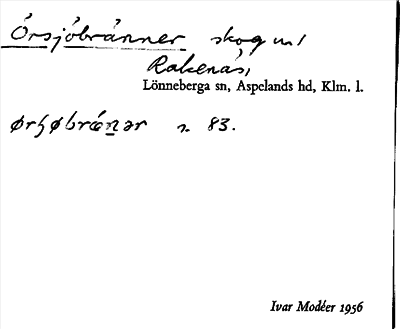 Örsjöbränner skog u. /
Rakenäs,
Lönneberga sn, Aspelands hd, Klm. l.
s. 83.
Ivar Modéer 1956